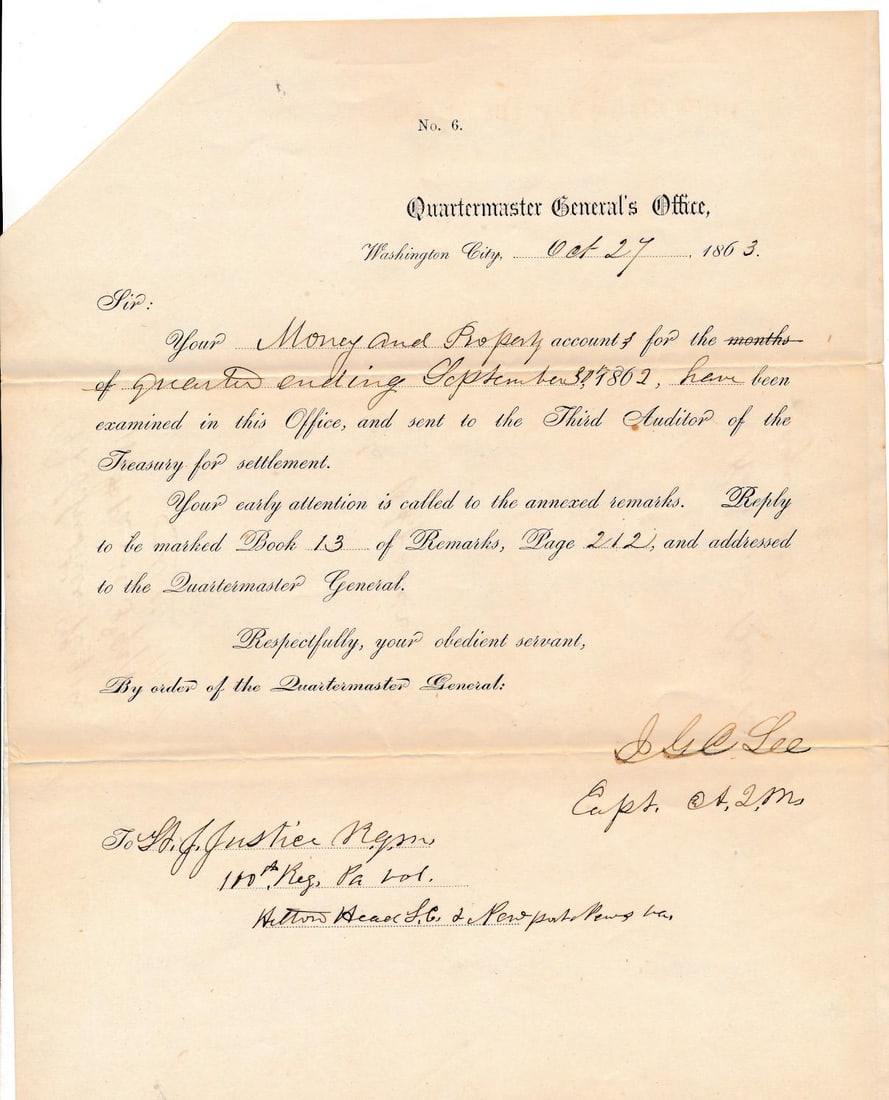 No. 6.
Quartermaster General's Office,
Washington City, Oct 27, 1863.
Sir:
Your Money and Property accounts for the ~~months~~
~~of~~ quarter ending September 30th 1862, have been
examined in this Office, and sent to the Third Auditor of the
Treasury for settlement.
Your early attention is called to the annexed remarks. Reply
to be marked Book 13 of Remarks, Page 212, and addressed
to the Quartermaster General.
Respectfully, your obedient servant,
By order of the Quartermaster General:
J G C Lee
Capt. A.Q.M.
To Lt. J. Justice R.Q.M.
100th. Reg. Pa Vol.
Hilton Head S.C. & Newport News Va.